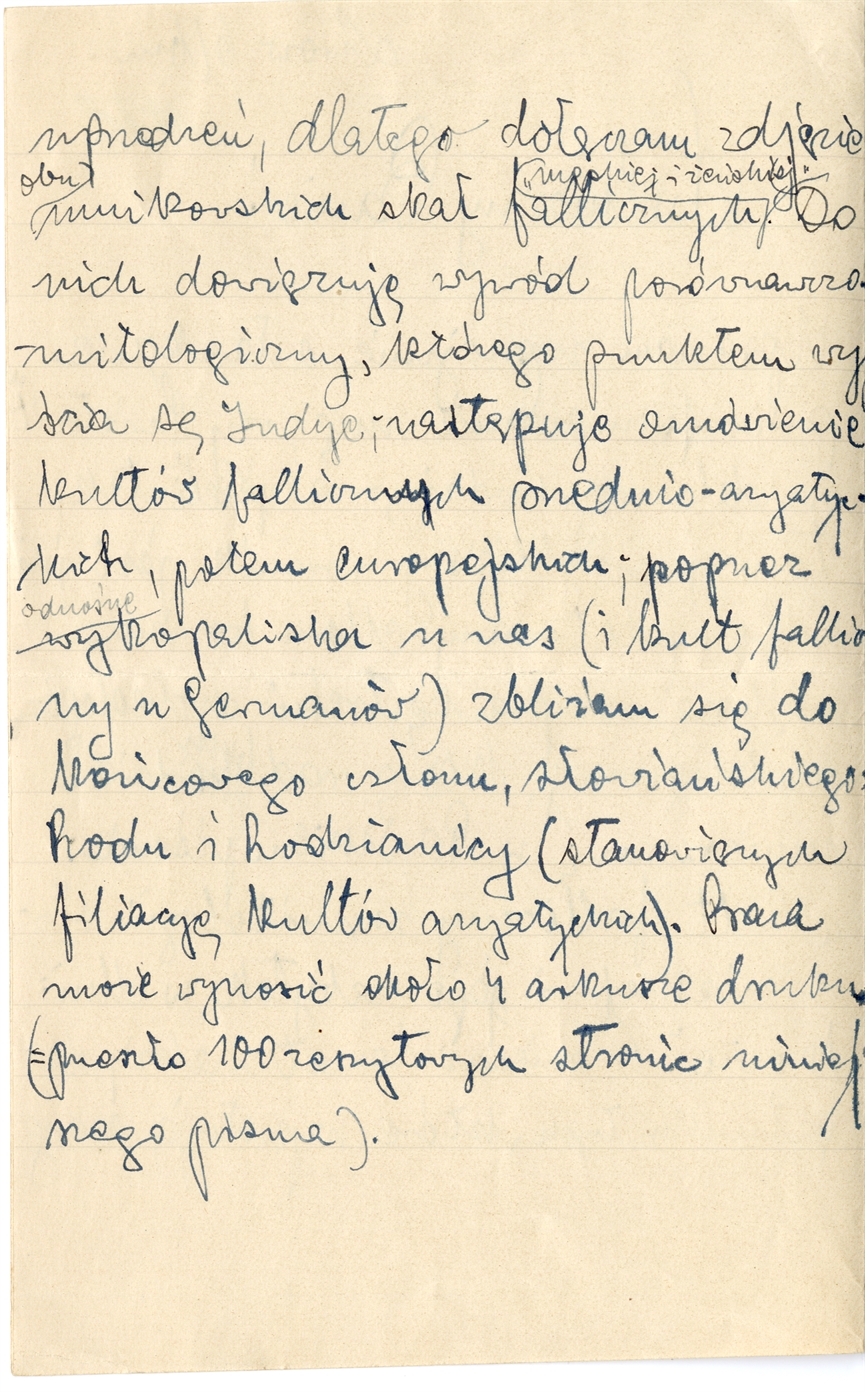 uprzedzeń, dlatego dołączam zdjęcie
obu „męskiej i żeńskiej”
mnikowskich skał fallicznych. Do
nich dowiązuję wywód porównawczo
-mitologiczny, którego punktem wyj
ścia są Indye; następuje omówienie
kultów fallicznych przednio-azyatyc
kich, potem europejskich; poprzez
odnośne
wykopaliska u nas (i kult fallicz
ny u Germanów) zbliżam się do
końcowego członu, słowiańskiego:
Rodu i Rodzianicy (stanowiących
filiacyę kultów azyatyckich). Praca
może wynosić około 4 arkusze druku
(= przeszło 100 zeszytowych stronic niniej
szego pisma).